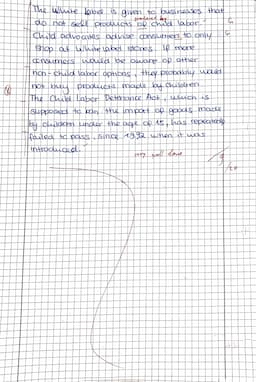 The White label is given to businesses that
produced by
do not sell products of child labor.
Child advocates advise consumers to only
shop at White label stores. If more
consumers would be aware of other
non-child labor options, they probably would
not buy products made by children.
The Child Labor Deterrence Act, which is
supposed to ban the import of goods made
by children under the age of 15, has repeatedly
failed to pass, since 1992 when it was
introduced.
very well done